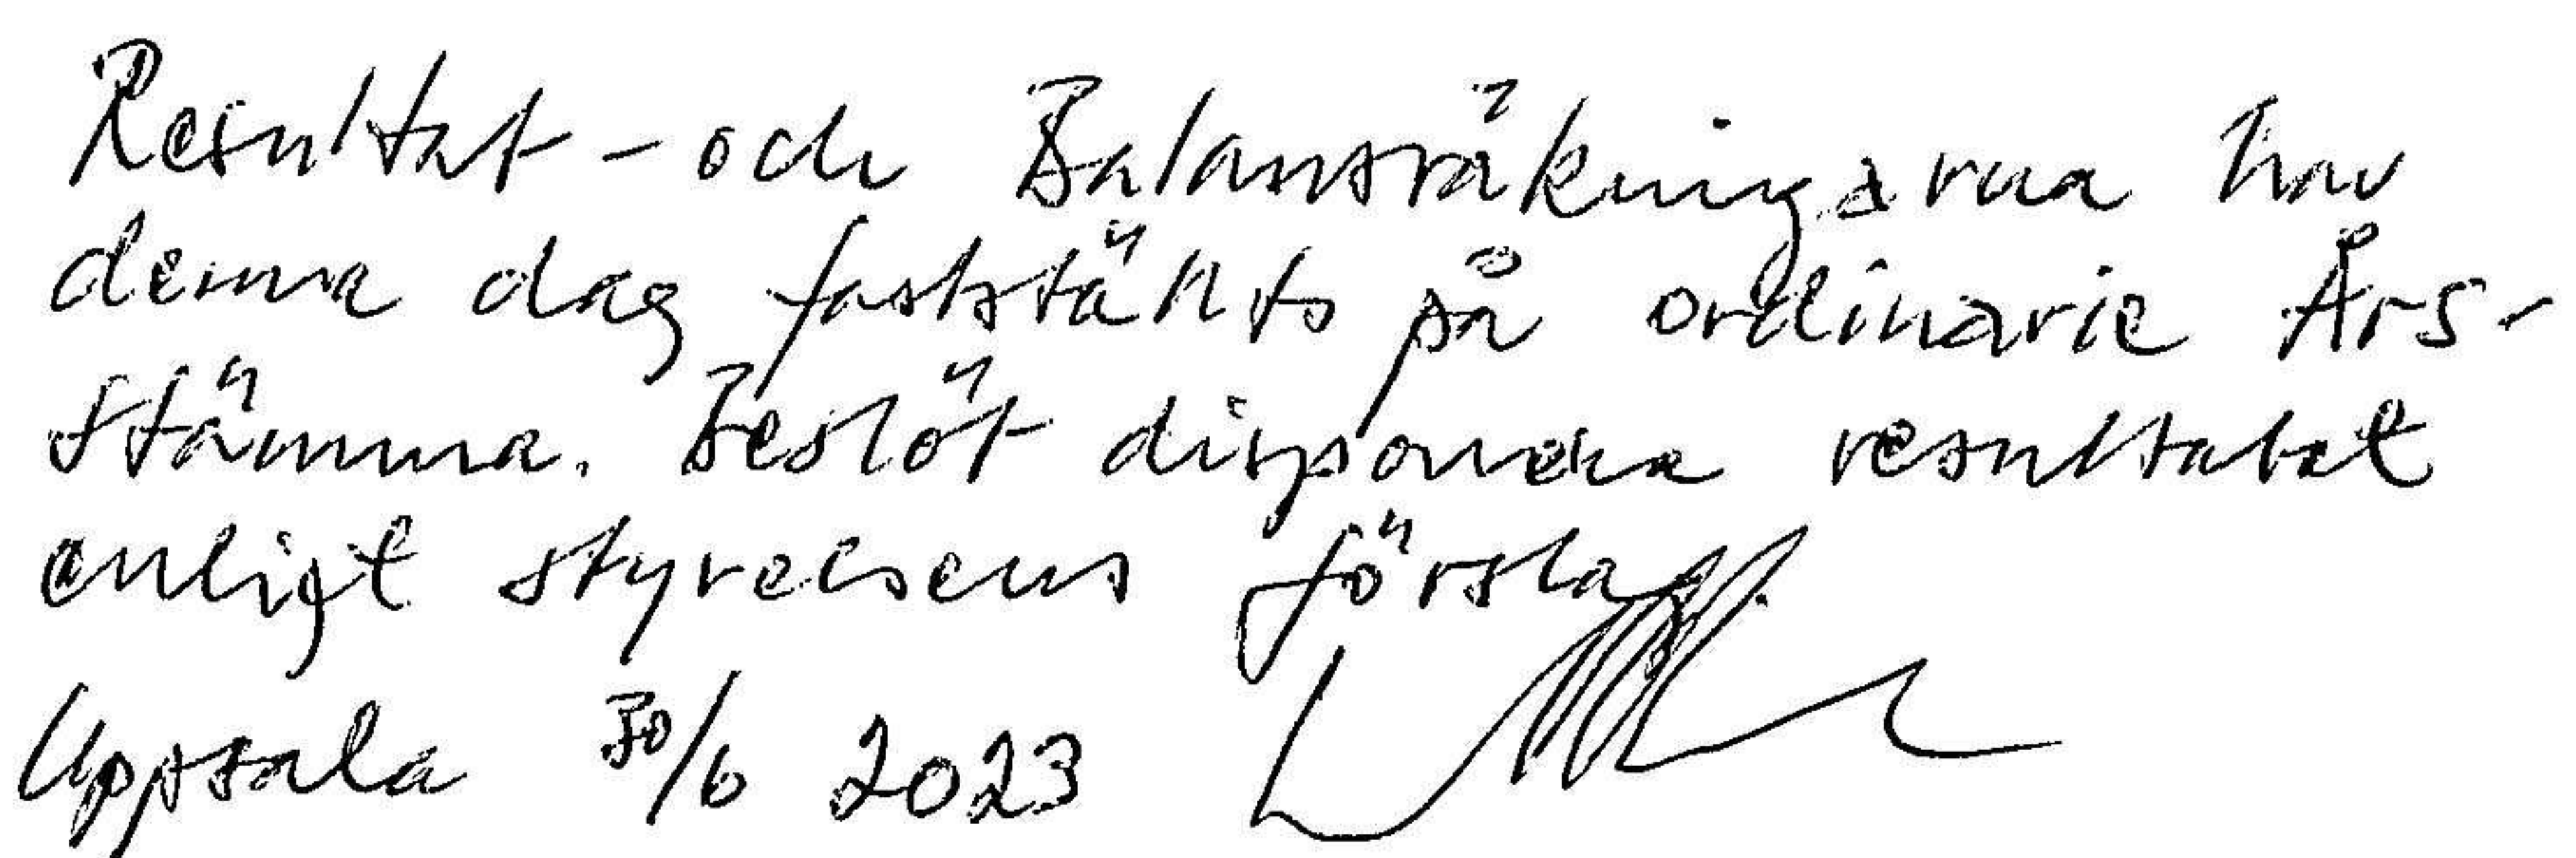 Resultat - och Balansräkningarna har
denna dag fastställts på ordinarie Års-
stämma. Beslöt disponera resultatet
enligt styrelsens förslag.
Uppsala 30/6 2023